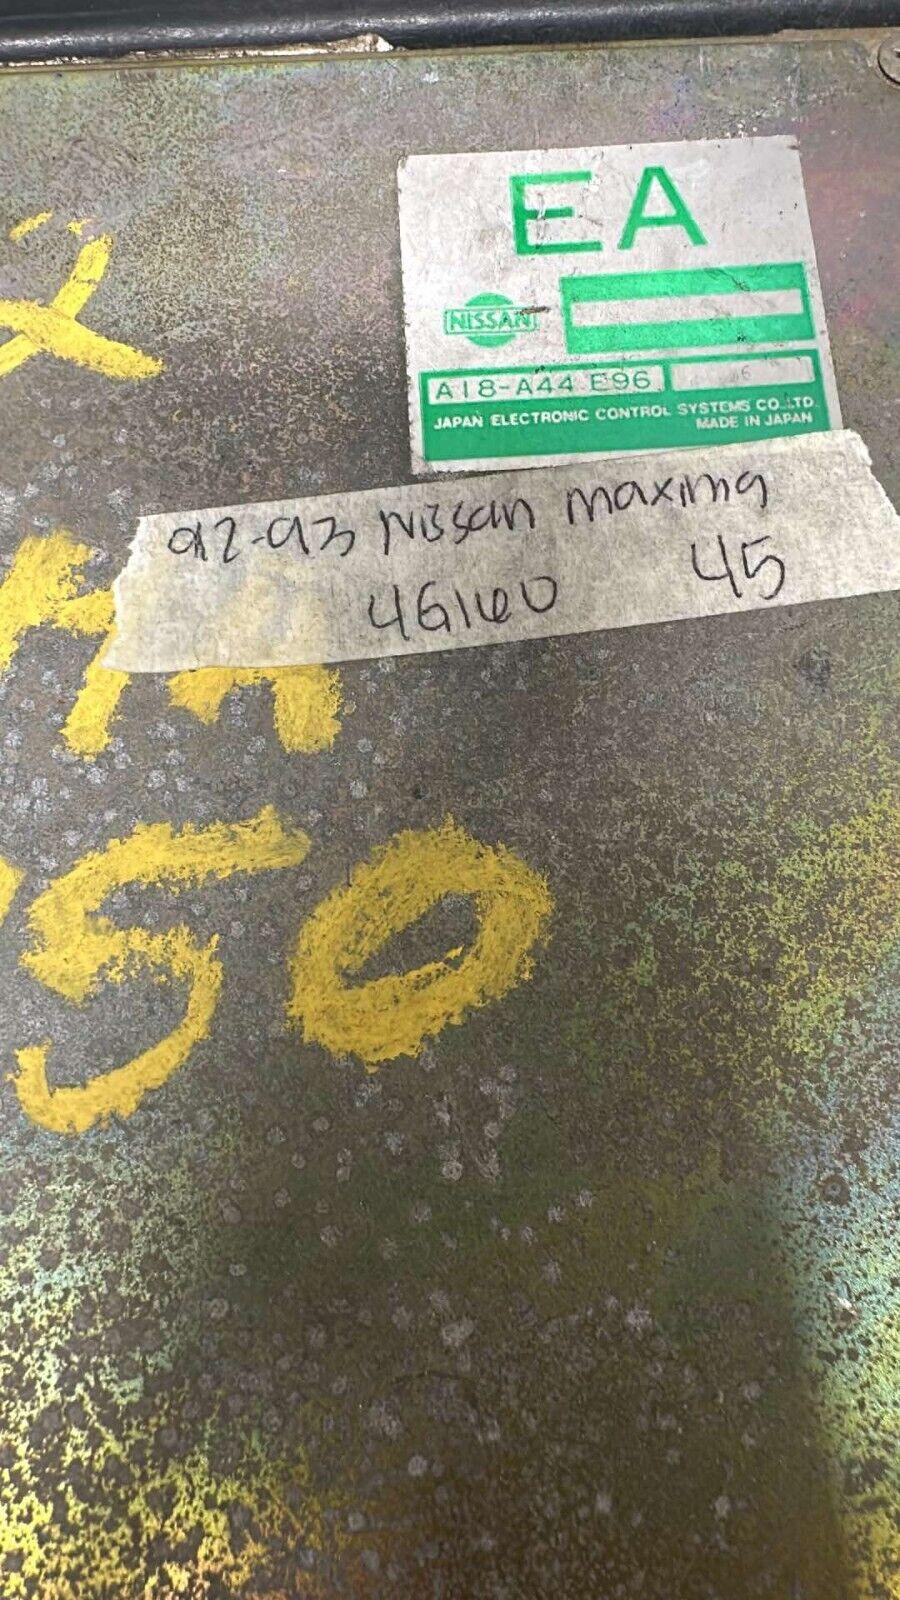 EA
NISSAN
A18-A44 E96 6
JAPAN ELECTRONIC CONTROL SYSTEMS CO.,LTD.
MADE IN JAPAN
92-93 Nissan maxima
4G160 45
50